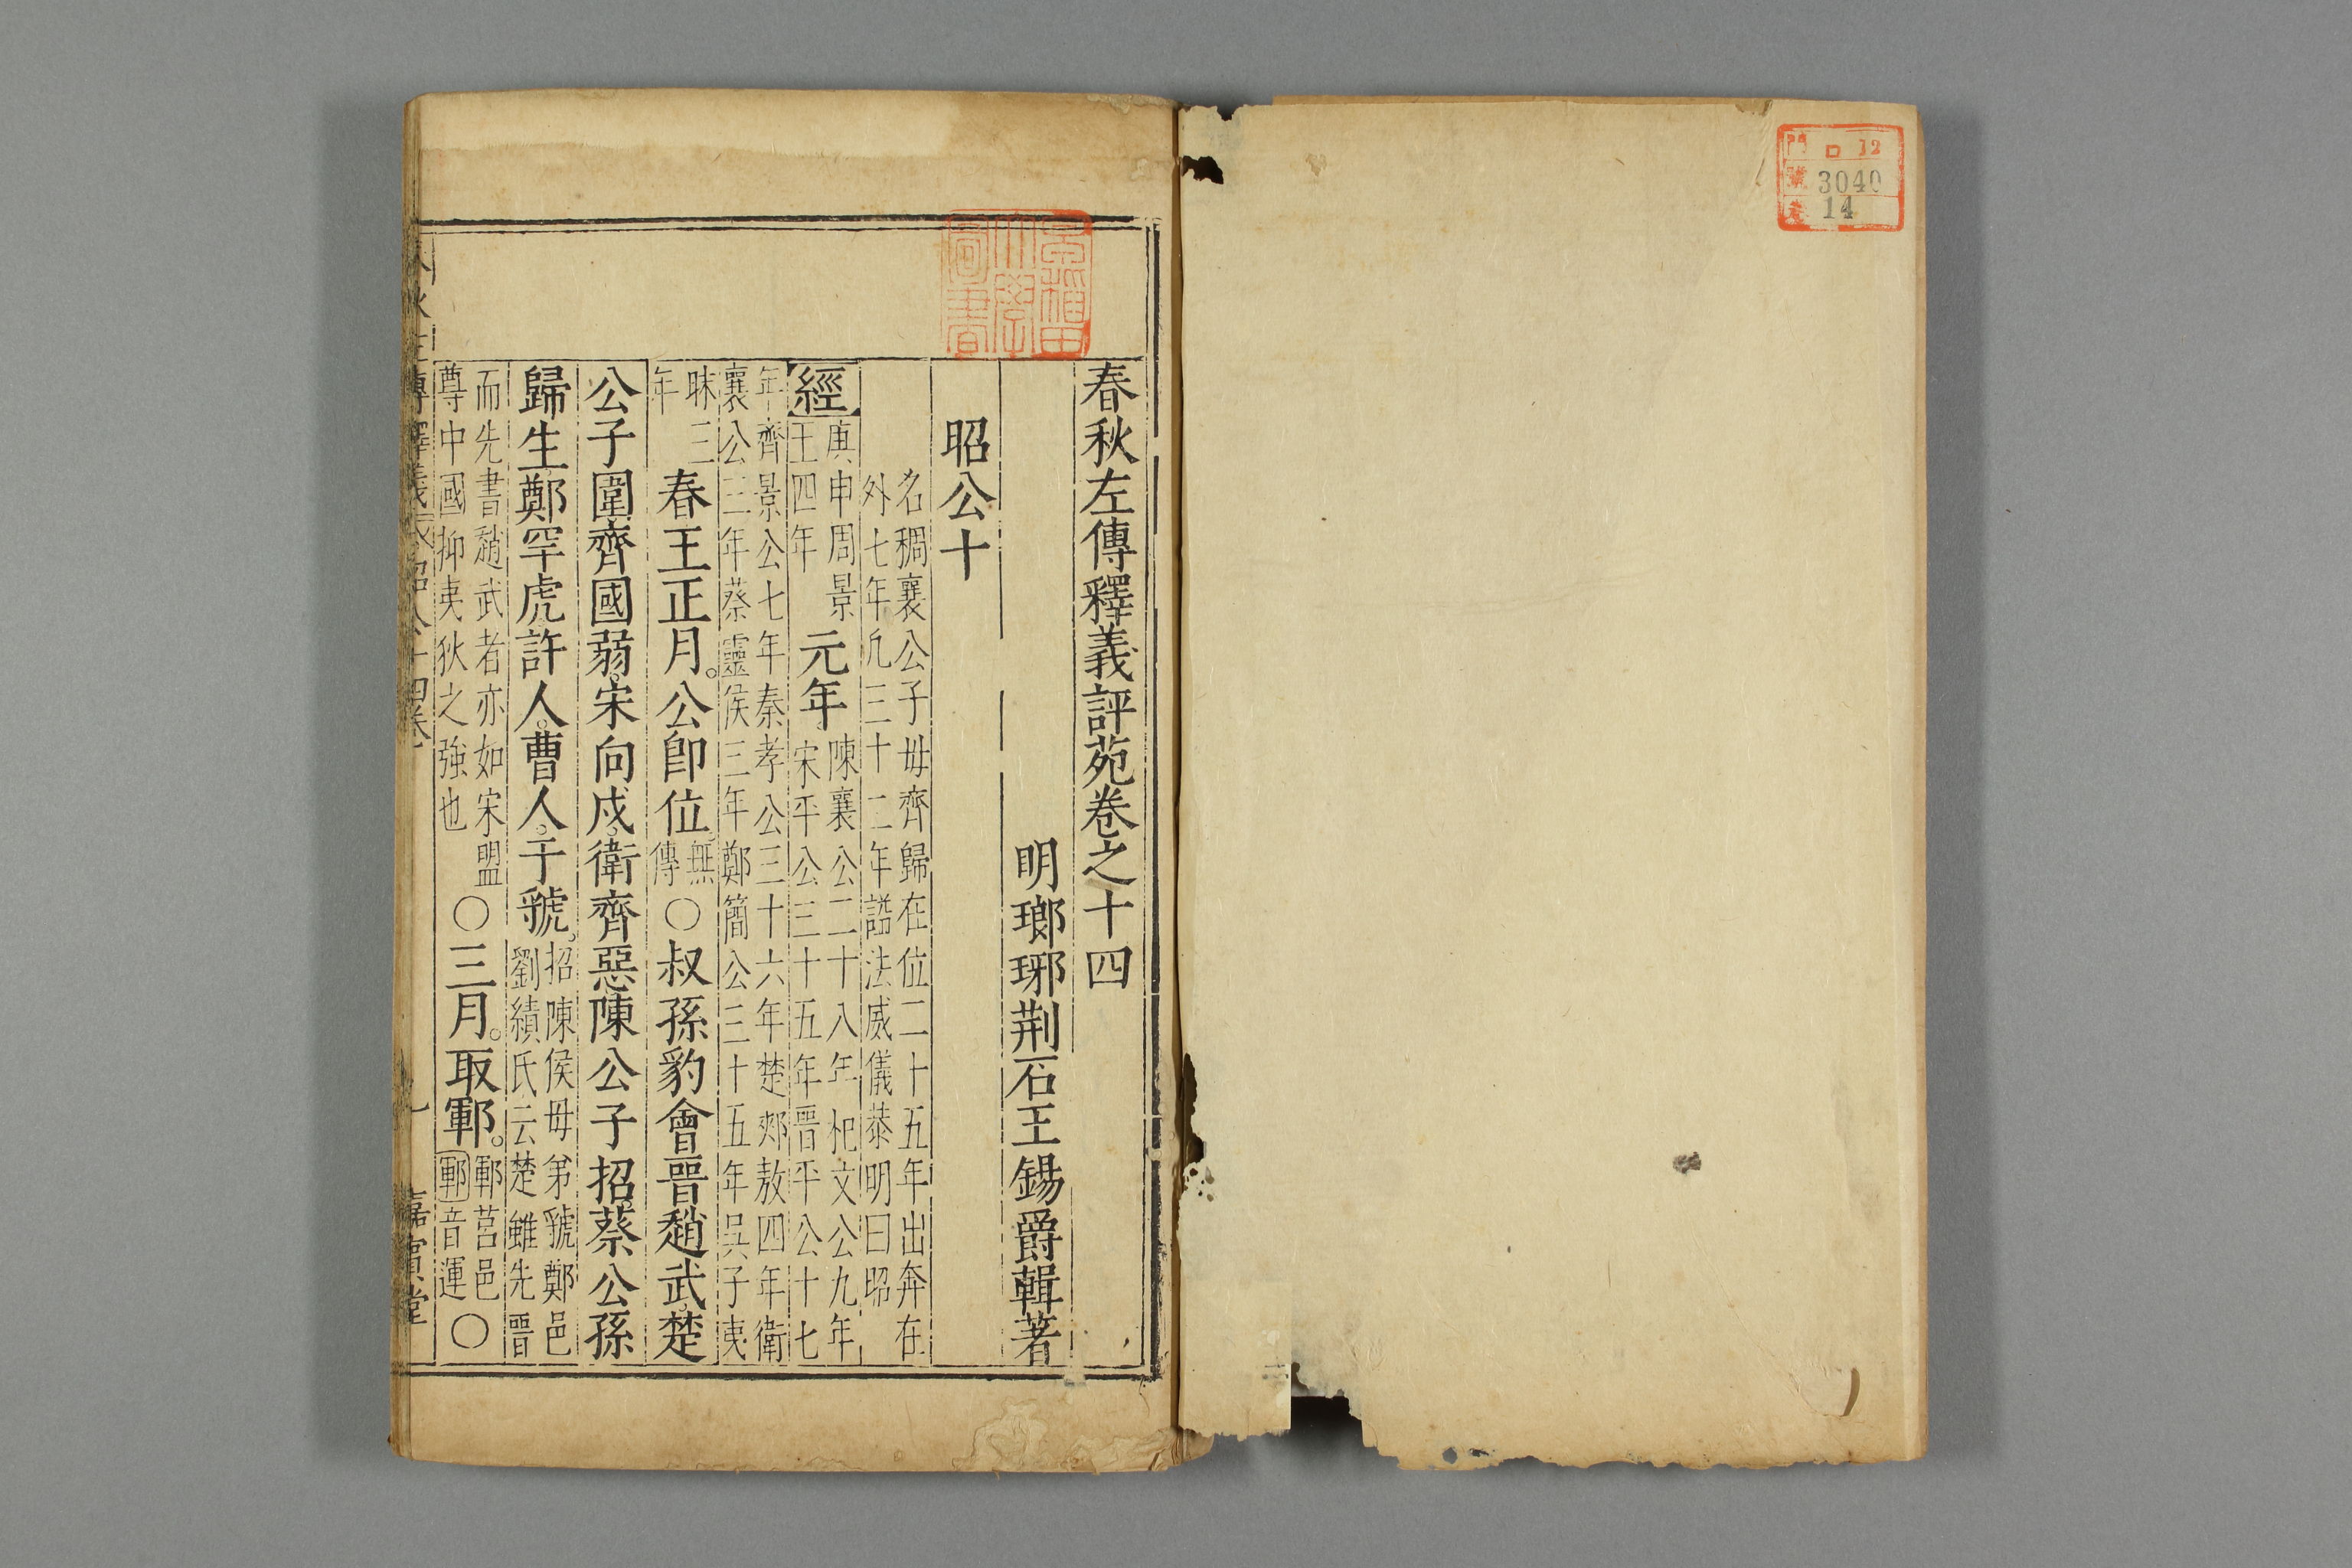 門 ロ 12
號 3040
卷 14
早稲田
大學
圖書
春秋左傳釋義評苑卷之十四
明瑯琊荆石王錫爵輯著
昭公十
名稠襄公子毋齊歸在位二十五年出奔在
外七年凢三十二年謚法威儀恭明曰昭
經 庚申周景
王四年
元年
陳襄公二十八年杞文公九年
宋平公三十五年晉平公十七
年齊景公七年秦孝公三十六年楚郟敖四年衛
襄公三年蔡靈侯三年鄭簡公三十五年吳子夷
昧三
年
春王正月。公卽位。無
傳
○叔孫豹會晉趙武。楚
公子圍。齊國弱。宋向戍。衛齊惡。陳公子招。蔡公孫
歸生。鄭罕虎。許人。曹人。于虢。
招陳侯毋弟虢鄭邑
劉績氏云楚雖先晉
而先書趙武者亦如宋盟
尊中國抑夷狄之強也
○三月。取鄆。
鄆莒邑
鄆音運
○
傳釋義 昭公十四卷 一 嘉賓堂